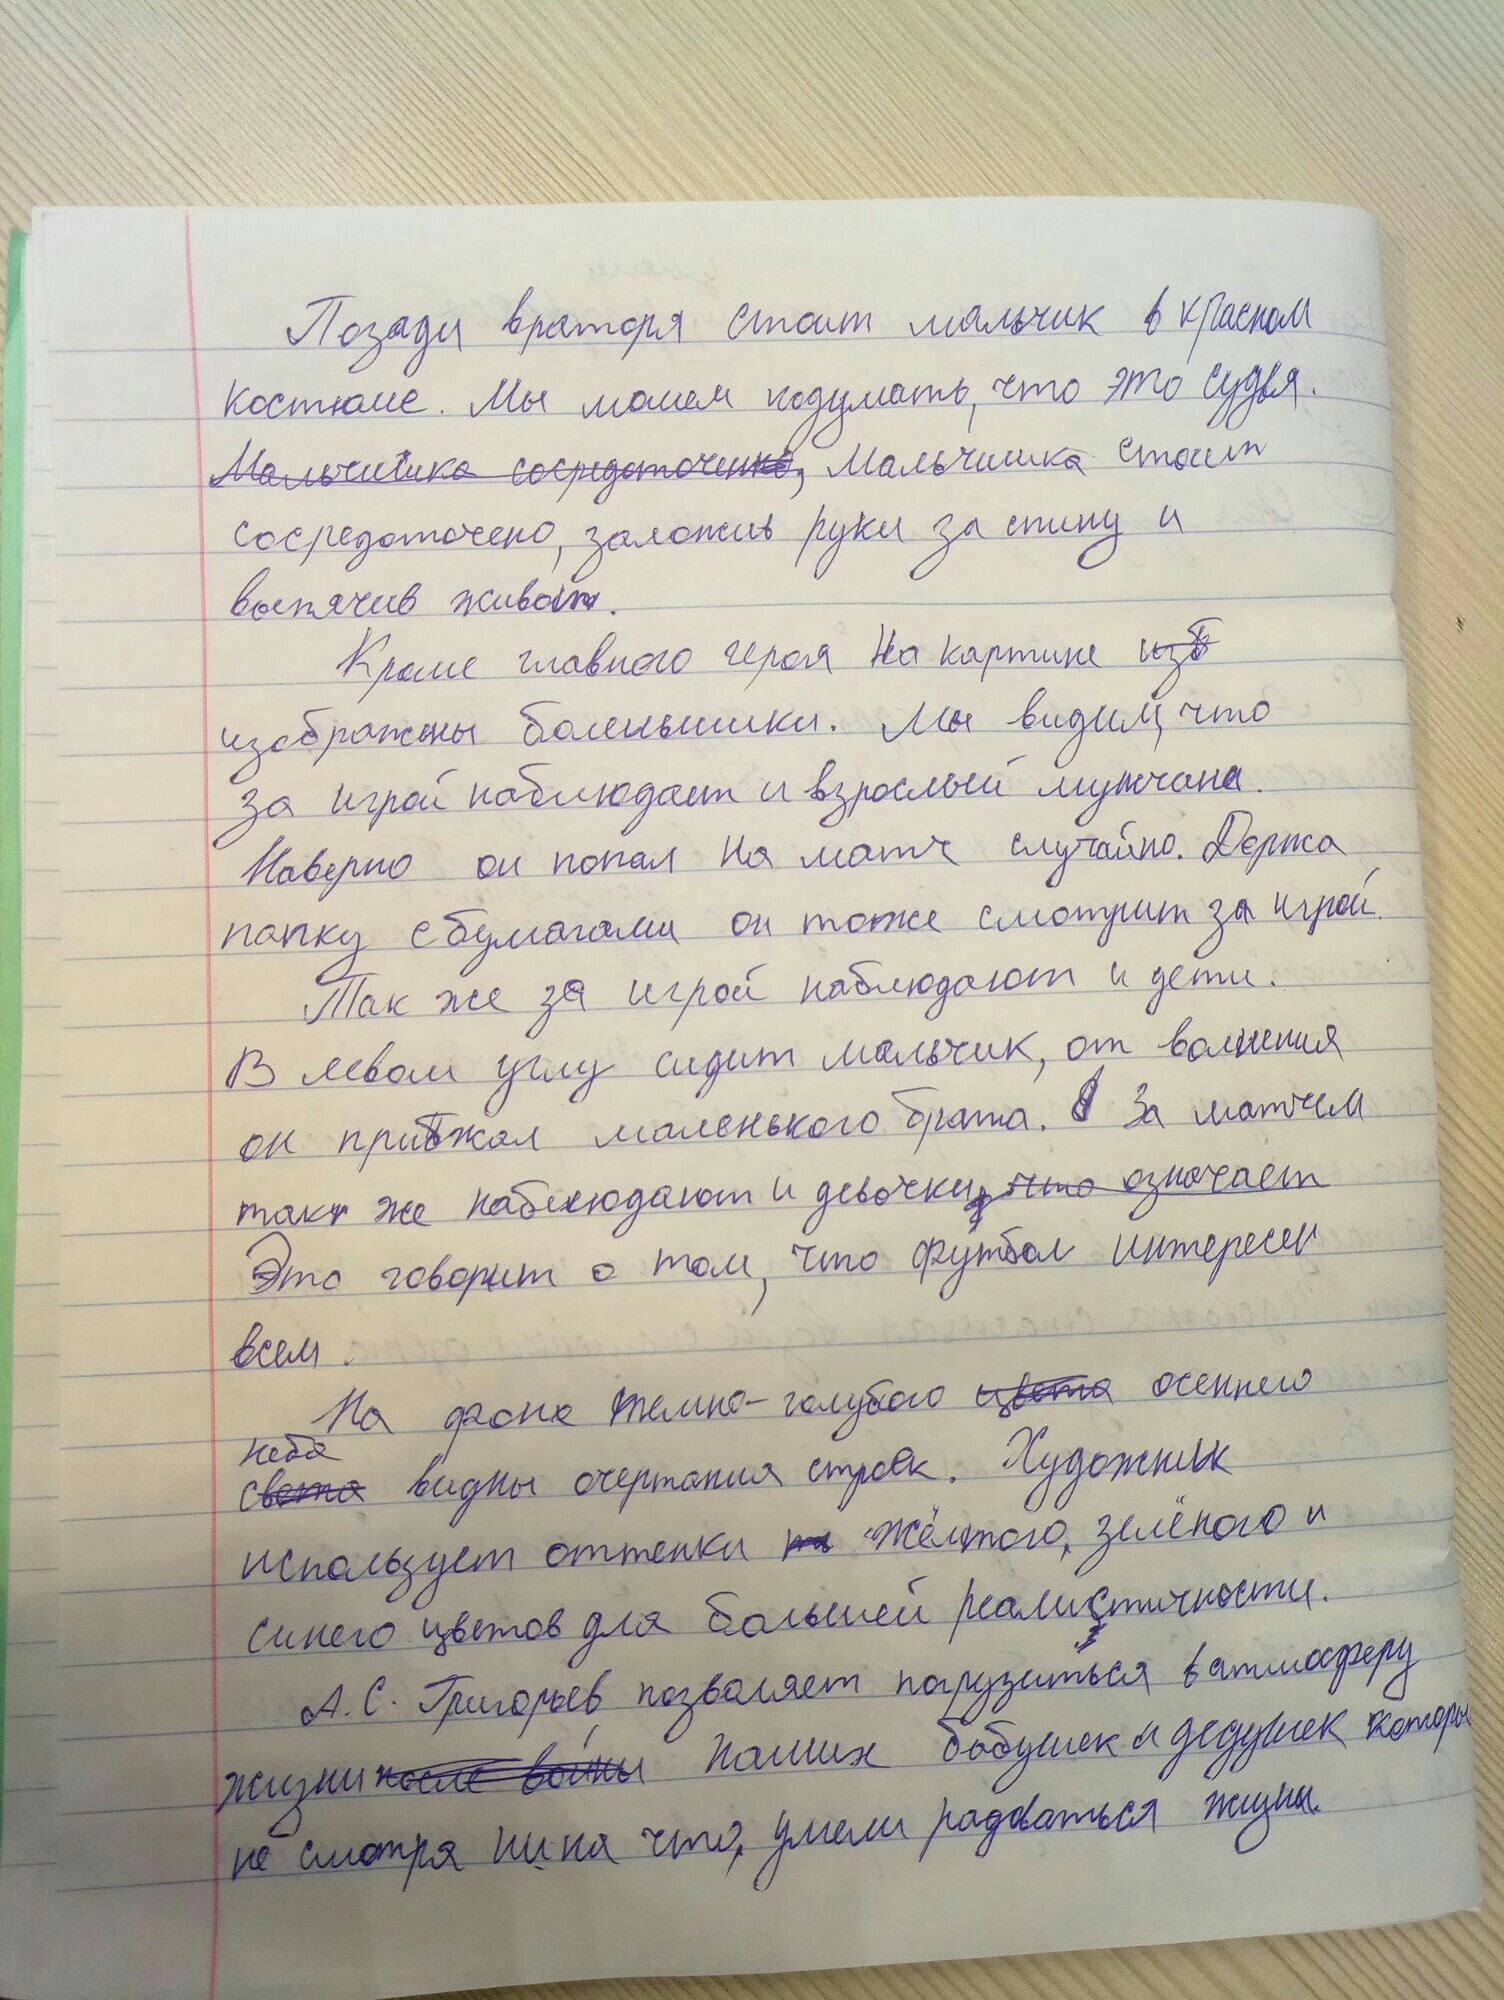 Позади вратаря стоит мальчик в красном
костюме. Мы можем подумать, что это судья.
Мальчишка сосредоточенно, Мальчишка стоит
сосредоточено, заложив руки за спину и
выпячив живот.
Кроме главного героя на картине изб
изображены болельшики. Мы видим, что
за игрой наблюдает и взрослый мужчина.
Наверно он попал на матч случайно. Держа
папку с бумагами он тоже смотрит за игрой.
Так же за игрой наблюдают и дети.
В левом углу сидит мальчик, от волнения
он прижал маленького брата. За матчем
так же наблюдают и девочки, что означает
Это говорит о том, что футбол интересен
всем.
На фоне темно-голубого цвета осеннего
неба
света видны очертания строек. Художник
использует оттенки на жёлтого, зелёного и
синего цветов для большей реалистичности.
А.С. Григорьев позволяет погрузиться в атмосферу
жизни после войны наших бабушек и дедушек которы
не смотря ни на что, умели радоваться жизни.